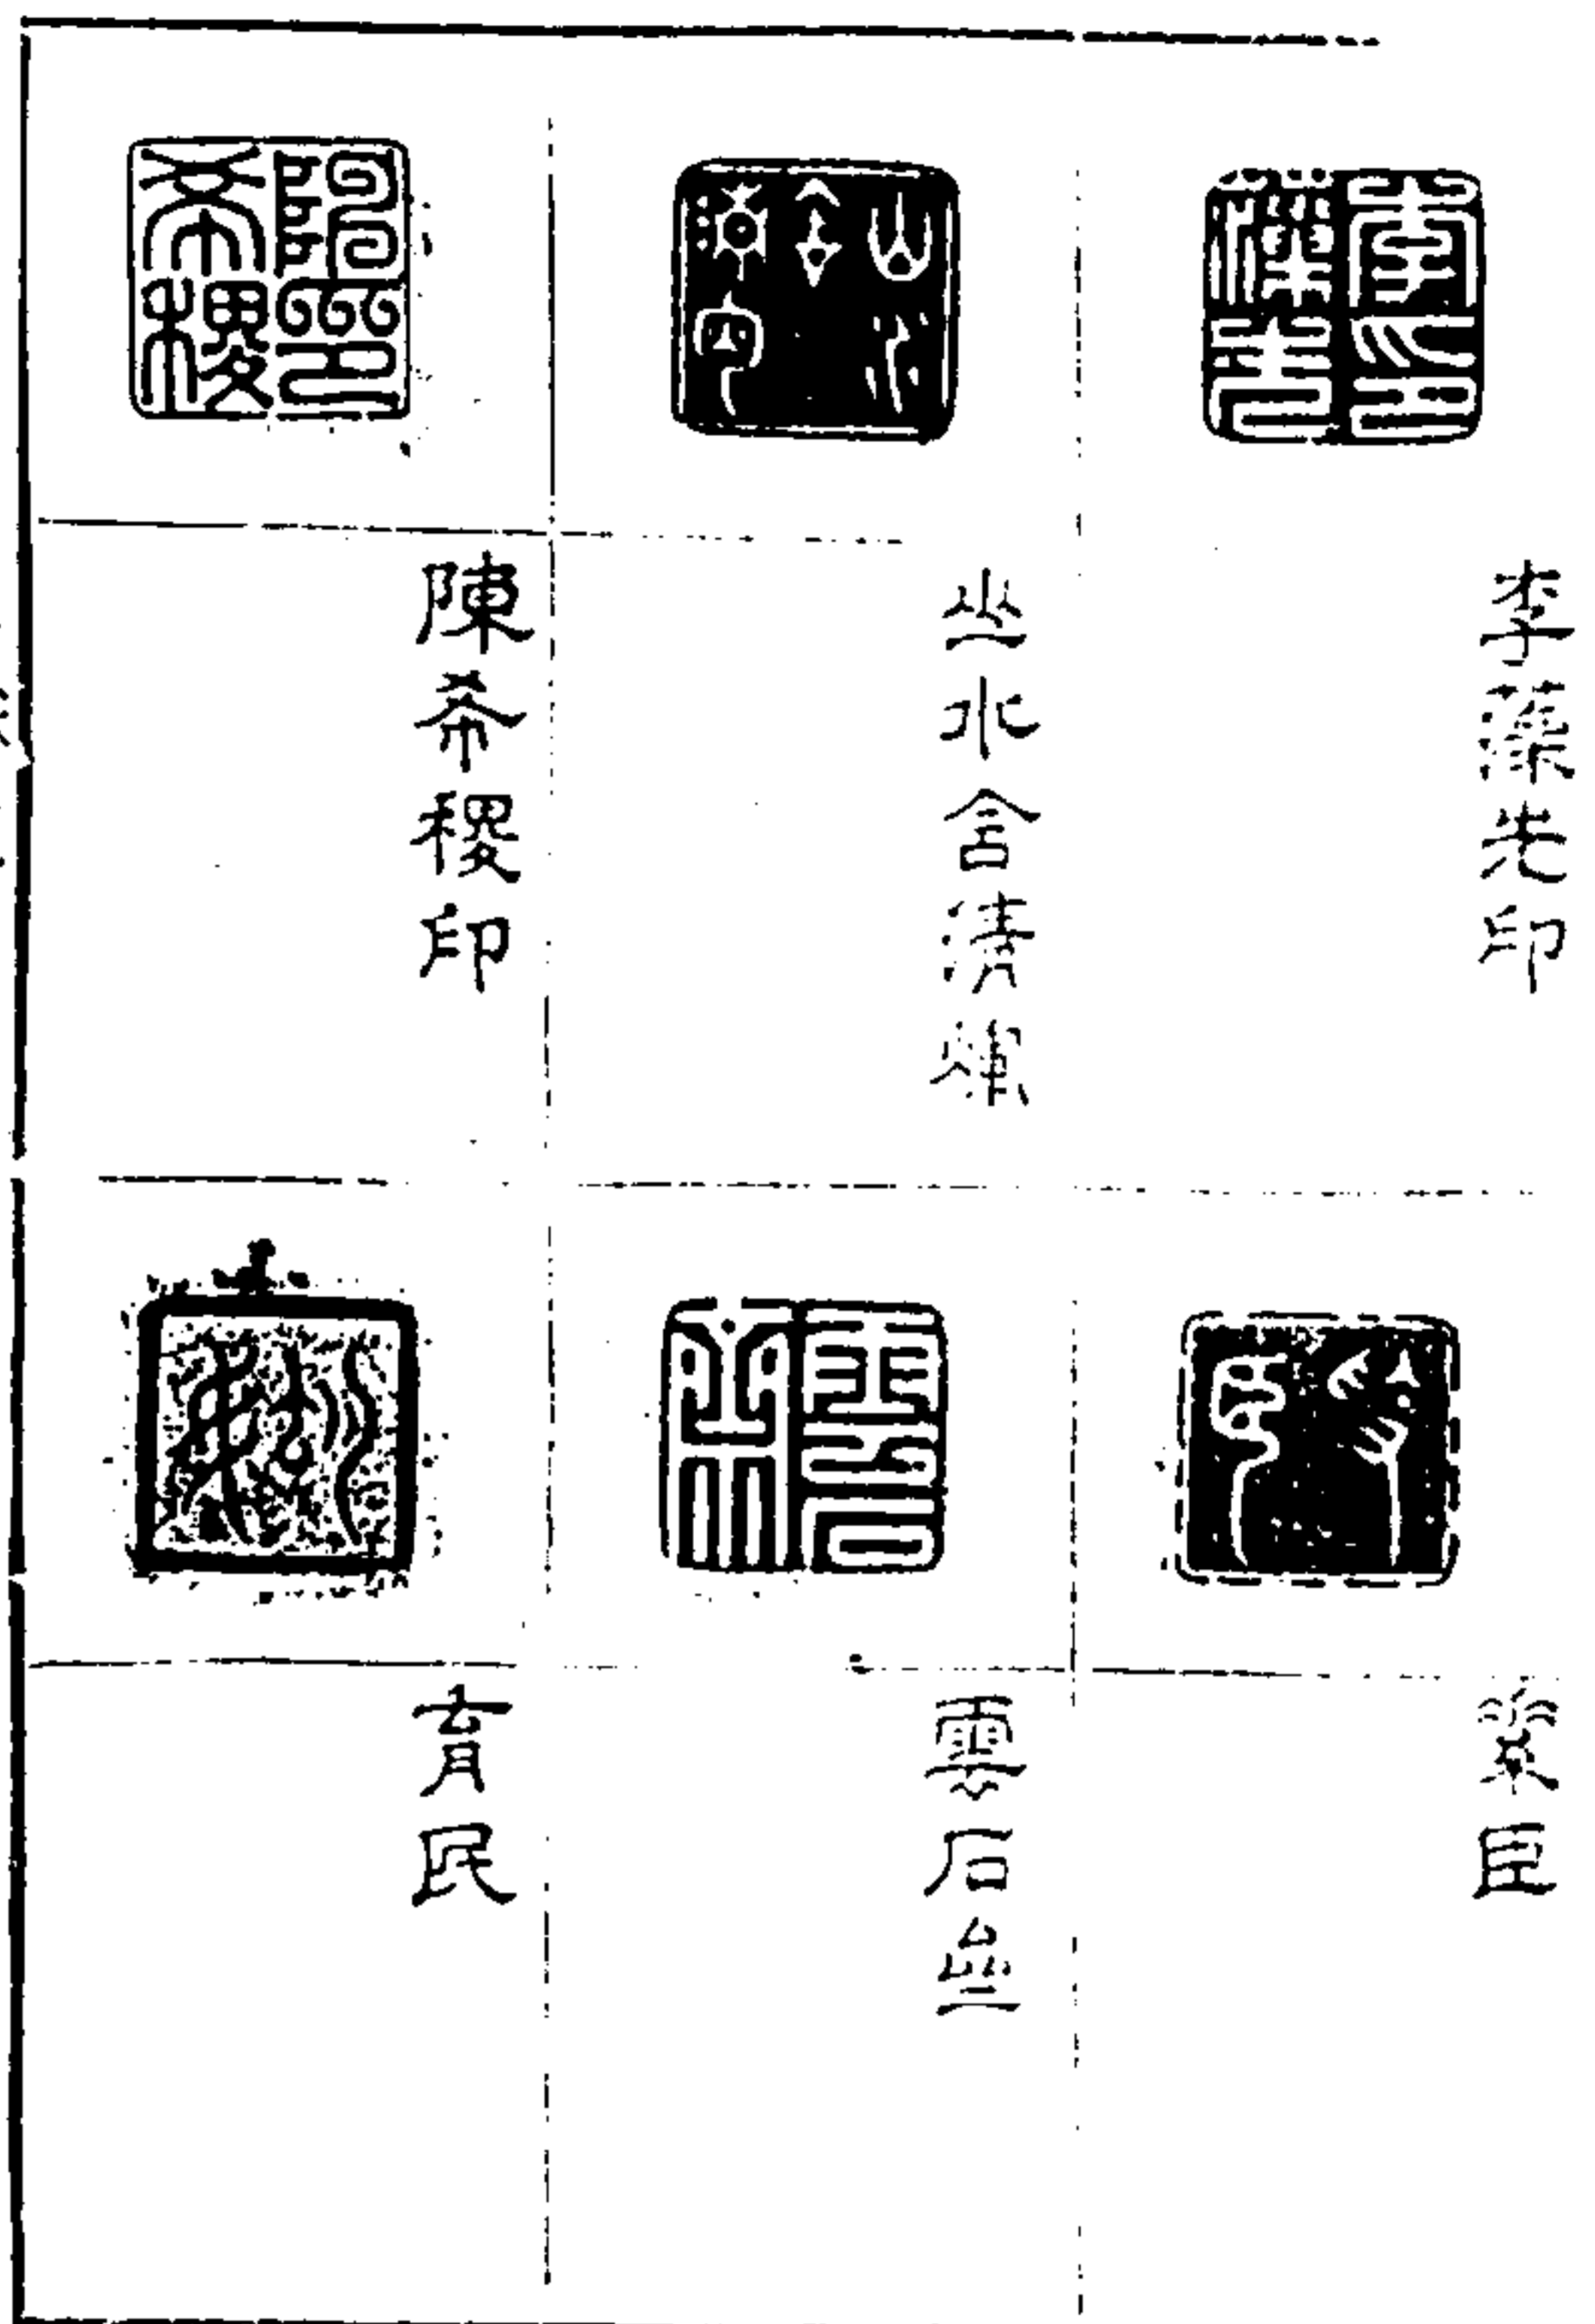 李藻先印
山水含清煇
陳希稷印
臣
雲石
育民